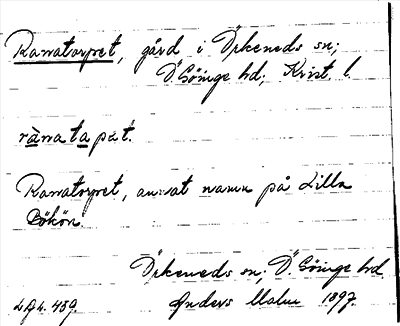 Rannatorpet, gård i Örkeneds sn;
Ö. Göinge hd; Krist. l.
rànatapàt.
Rannatorpet, annat namn på Lilla
Bökön
Örkeneds sn; Ö. Göinge hd.
Anders Malm 1897.